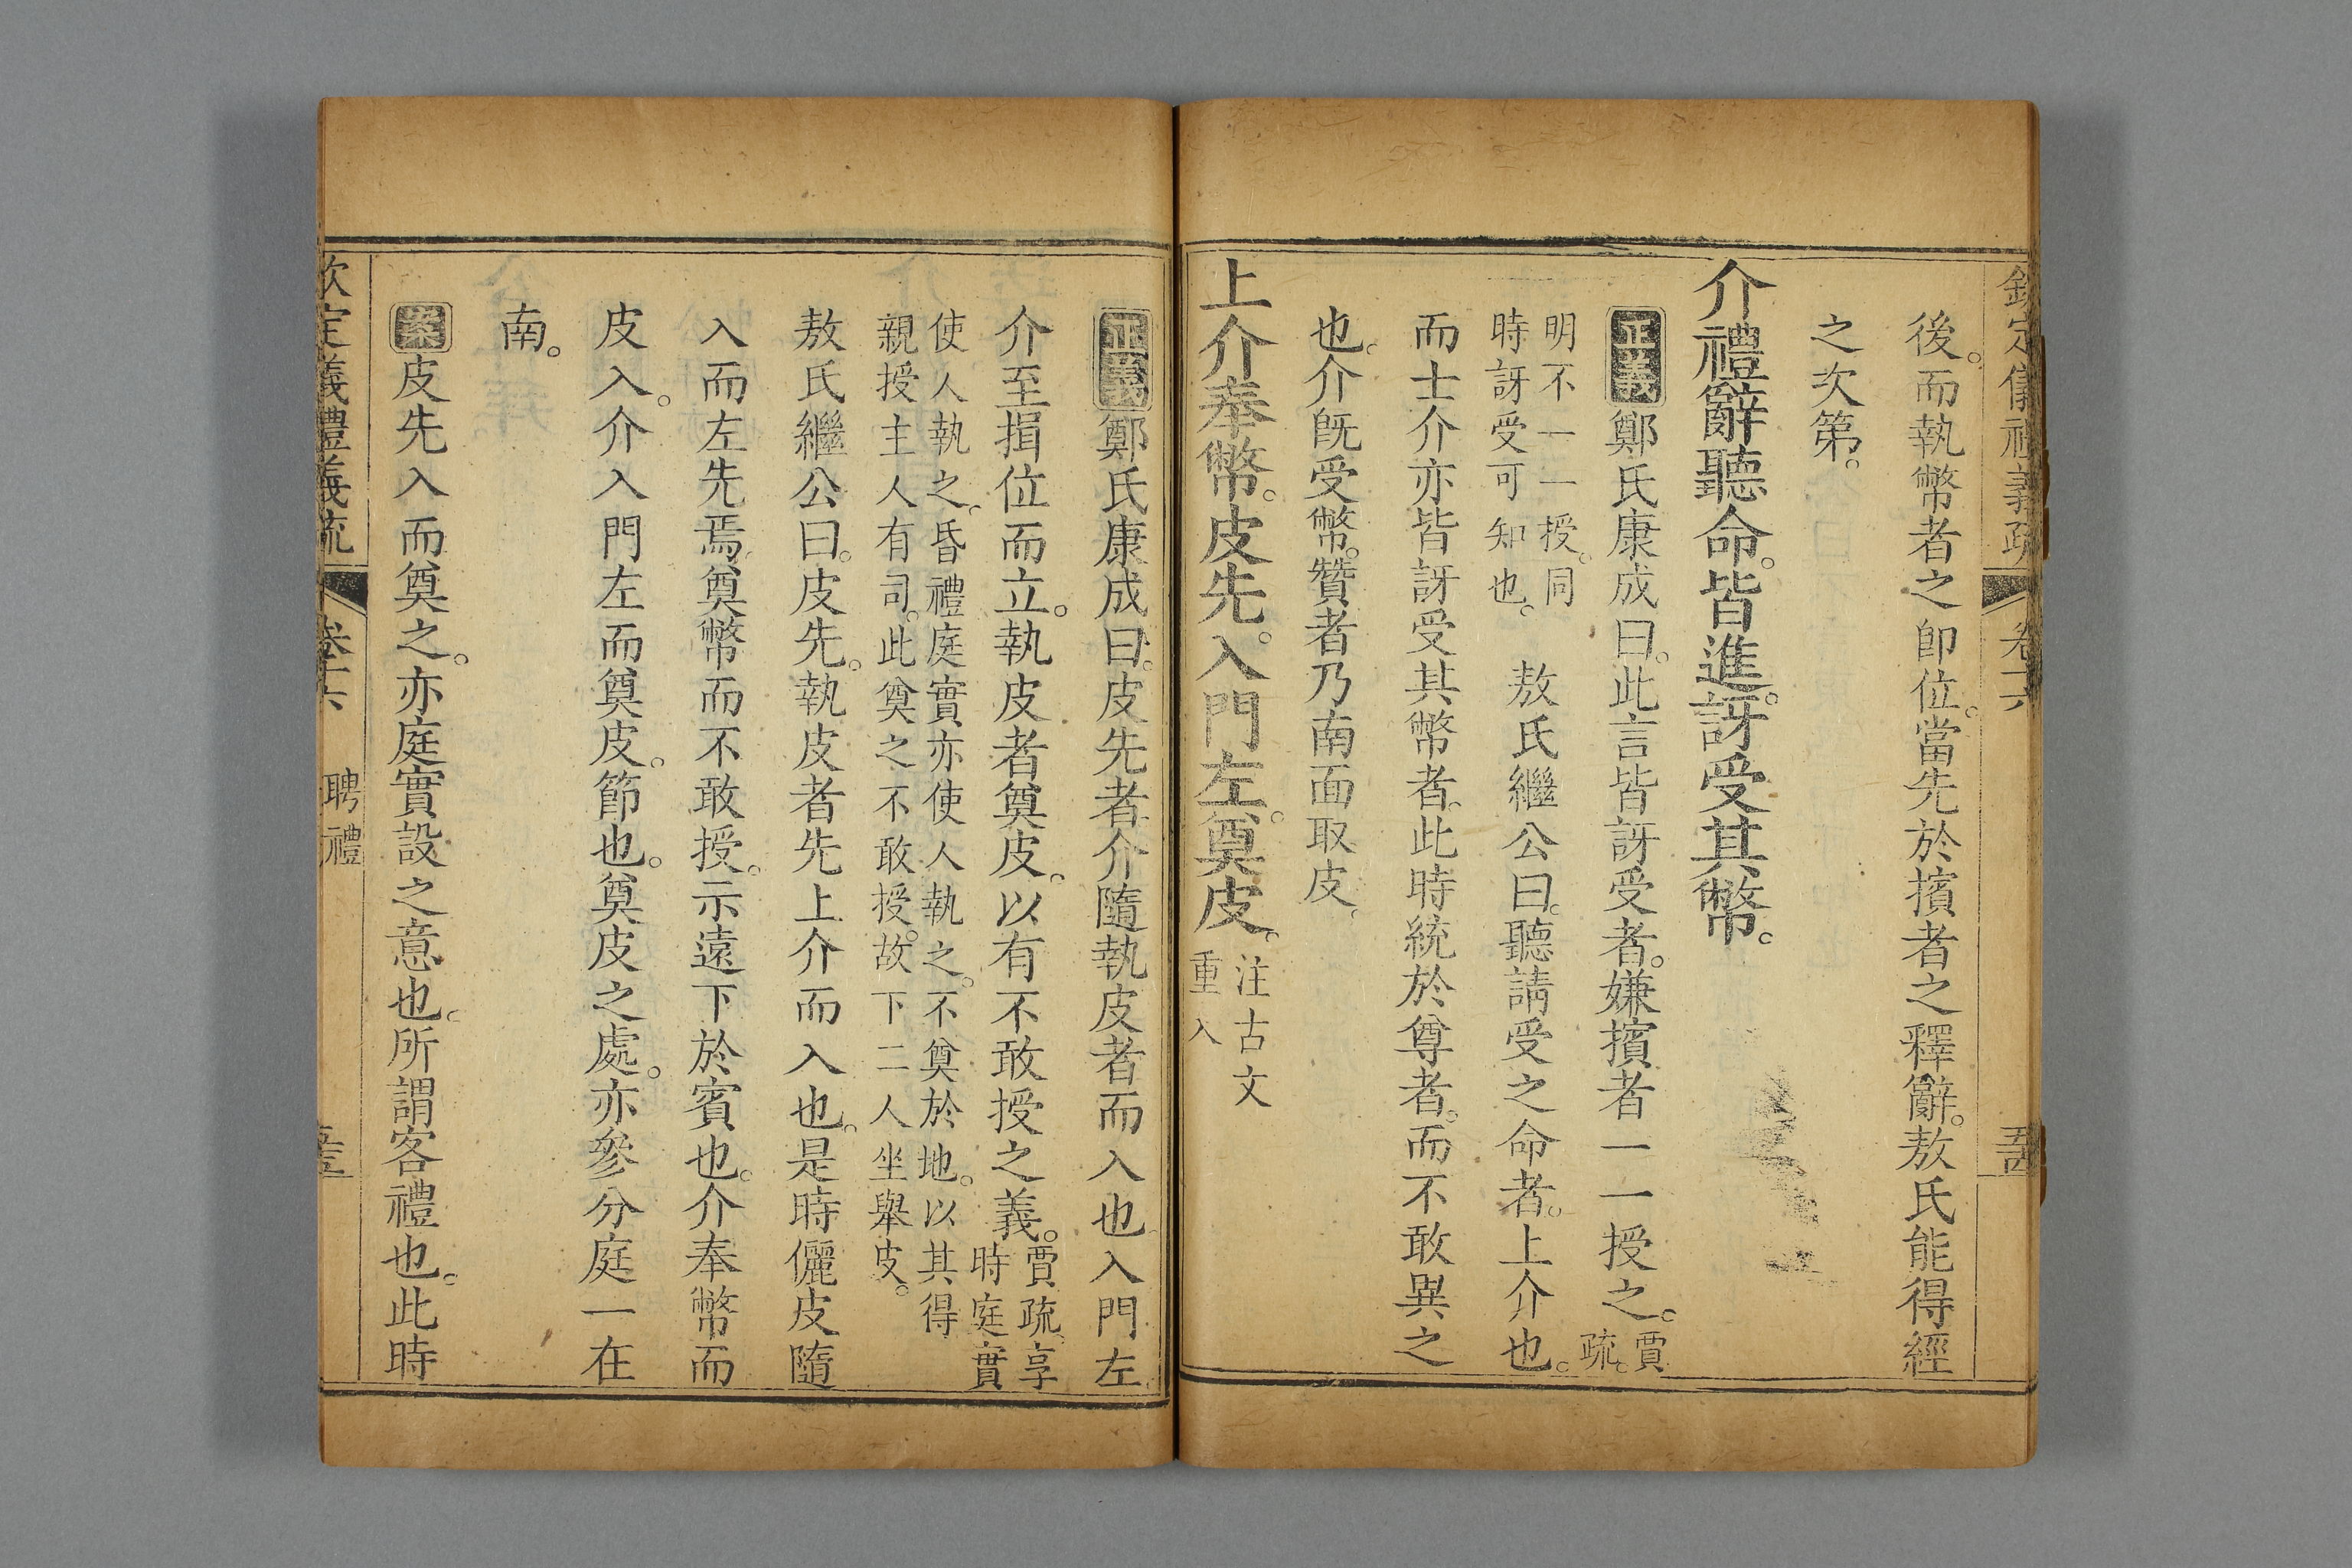 欽定儀禮義疏 卷十六 五四
後。而執幣者之卽位。當先於擯者之釋辭。敖氏能得經
之次第。
介禮辭聽命。皆進。訝受其幣。
正義鄭氏康成曰。此言皆訝受者。嫌擯者一一授之。賈疏。
明不一一授。同
時訝受可知也。
敖氏繼公曰。聽請受之命者。上介也。
而士介亦皆訝受其幣者。此時統於尊者。而不敢異之
也。介旣受幣。贊者乃南面取皮。
上介奉幣。皮先。入門左。奠皮。注古文
重入
正義鄭氏康成曰。皮先者。介隨執皮者而入也。入門左
介至揖位而立。執皮者奠皮。以有不敢授之義。賈疏。享
時庭實
使人執之。昏禮庭實亦使人執之。不奠於地。以其得
親授主人有司。此奠之不敢授。故下二人坐舉皮。
敖氏繼公曰。皮先。執皮者先上介而入也。是時儷皮隨
入而左先焉。奠幣而不敢授。示遠下於賓也。介奉幣而
皮入。介入門左而奠皮。節也。奠皮之處。亦參分庭一在
南。
案皮先入而奠之。亦庭實設之意也。所謂客禮也。此時
欽定義禮義疏 卷十六 聘禮